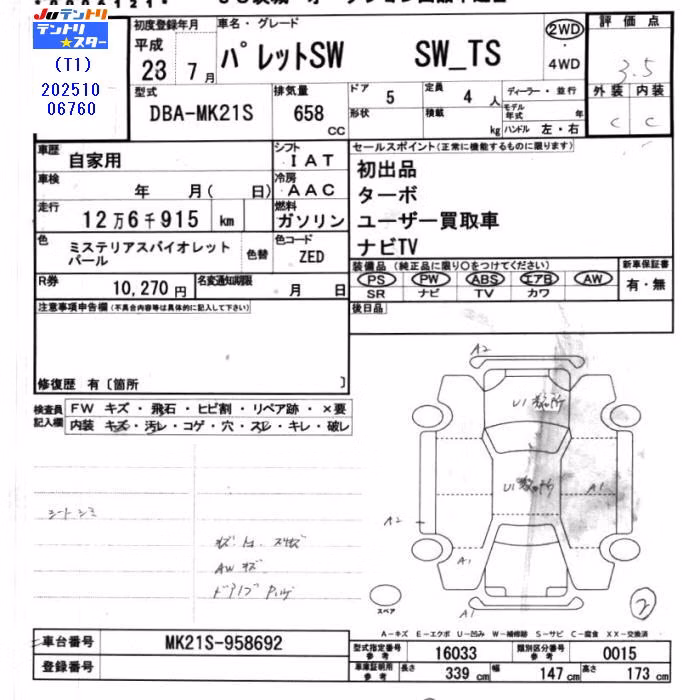 Juテントリ
テントリ★スター
(T1)
202510
06760
初度登録年月
平成
23 7月
車名・グレード
パレットSW SW_TS
2WD
・
4WD
評価点
3.5
外装 内装
C C
型式
DBA-MK21S
排気量
658
CC
ドア
5
定員
4 人
形状
積載
kg
ディーラー・並行
モデル年式 年
ハンドル 左・右
車歴
自家用
シフト
IAT
車検
年 月( 日)
冷房
AAC
走行
12万6千915 km
燃料
ガソリン
色
ミステリアスバイオレット
パール
色替
色コード
ZED
R券
10,270円
名変通知期限
月 日
セールスポイント(正常に機能するものに限ります)
初出品
ターボ
ユーザー買取車
ナビTV
装備品 (純正品に限り○をつけてください)
PS PW ABS エアB AW
SR ナビ TV カワ
新車保証書
有・無
後日品
注意事項申告欄(不具合内容等は具体的に記入して下さい)
修復歴 有〔箇所 〕
検査員
記入欄
FW キズ・飛石・ヒビ割・リペア跡・×要
内装 キズ・汚レ・コゲ・穴・スレ・キレ・破レ
シートシミ
AWキズ
A2
U1
U1
A1
A2
A1
A1
スペア
2
A-キズ E-エクボ U-凹み W-補修跡 S-サビ C-腐食 XX-交換済
車台番号
MK21S-958692
登録番号
型式指定番号
参考
16033
類別区分番号
参考
0015
車庫証明用
参考
長さ 339 cm 幅 147 cm 高さ 173 cm